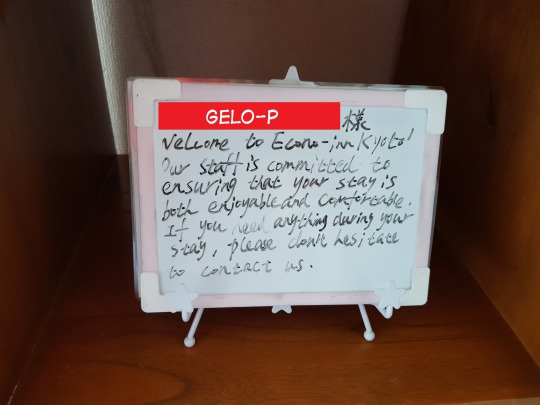 GELO-P 様
Welcome to Econo-inn Kyoto!
Our staff is committed to
ensuring that your stay is
both enjoyable and comfortable.
If you need anything during your
stay, please don't hesitate
to contact us.